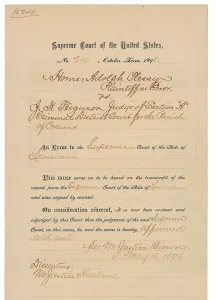 Supreme Court of the United States,
No. 210, October Term, 1895.
Homer Adolph Plessy
Plaintiff in Error,
vs.
J. H. Ferguson, Judge of Section "A"
Criminal District Court for the Parish
of Orleans
In Error to the Supreme Court of the State of
Louisiana
This cause came on to be heard on the transcript of the
record from the Supreme Court of the State of Louisiana
and was argued by counsel.
On consideration whereof, It is now here ordered and
adjudged by this Court that the judgment of the said Supreme
Court, in this cause, be, and the same is hereby, affirmed
with costs.
per Mr. Justice Brown,
May 18, 1896.
Dissenting:
Mr. Justice Harlan